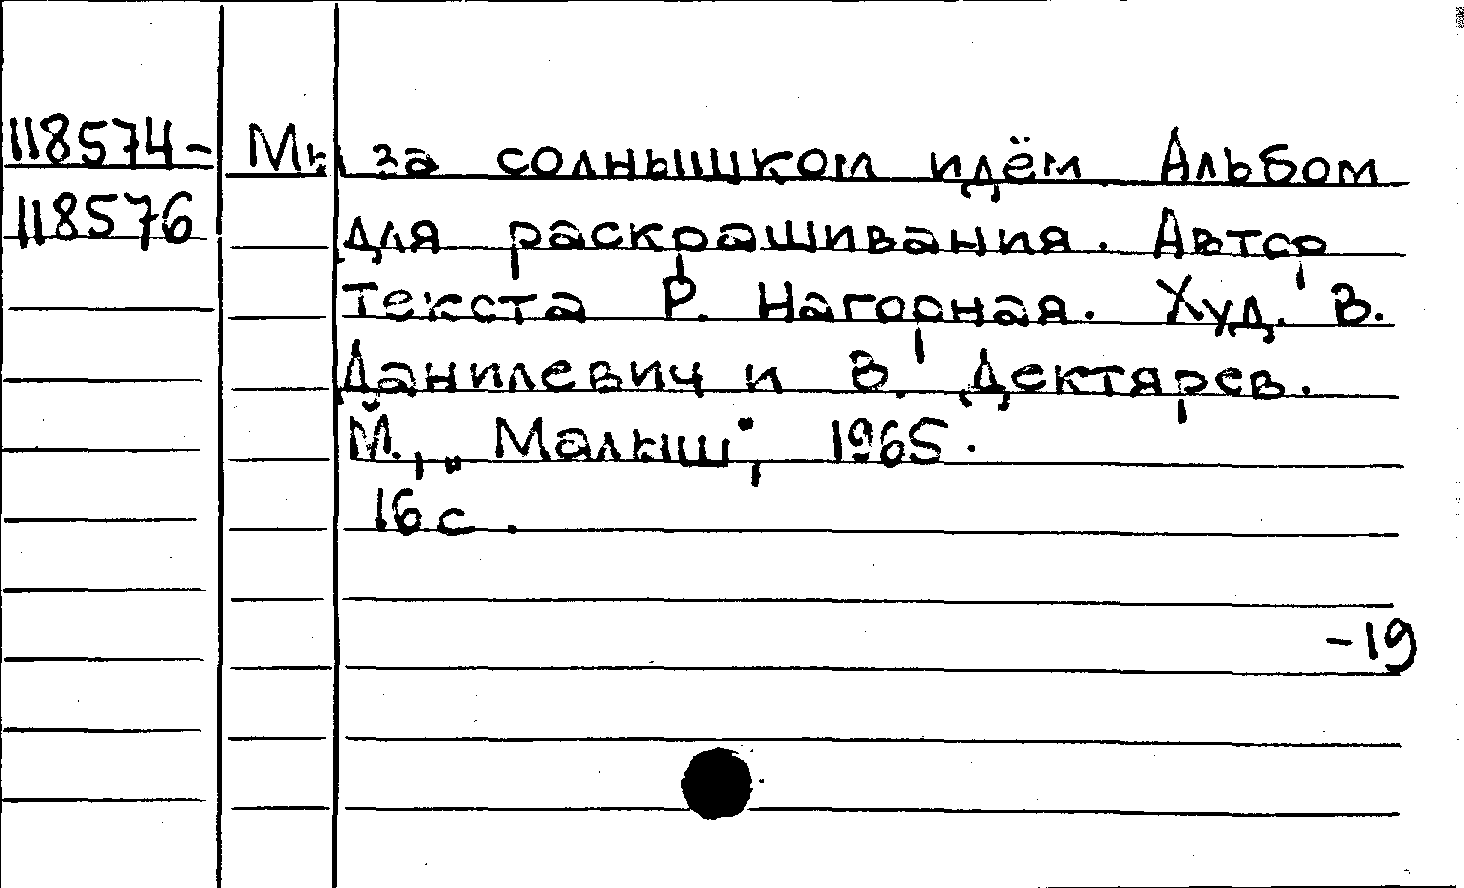 118574- Мы за солнышком идём Альбом
118576 для раскрашивания. Автор
текста Р. Нагорная. Худ. В.
Данилевич и В. Дектярев.
М., „Малыш", 1965.
16 с.
-19